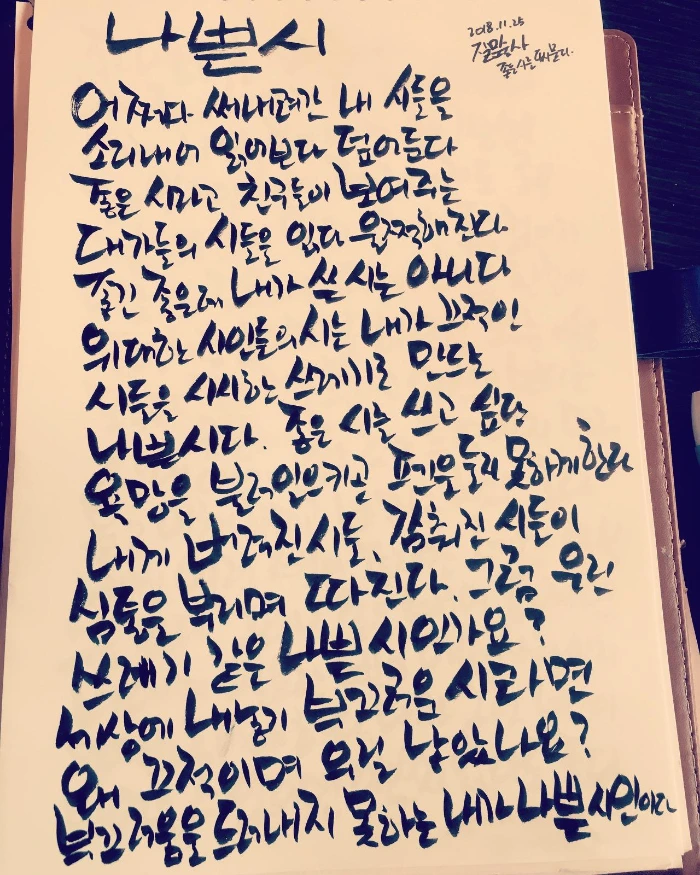 나쁜시
2018.11.25
어쩌다 써내려간 내 시들을
소리내어 읽어보다 덮어둔다
좋은 시라고 친구들이 보여주는
대가들의 시들을 읽다 울적해진다
좋긴 좋은데 내가 쓴 시는 아니다
위대한 시인들의 시는 내가 끄적인
시들을 시시한 쓰레기로 만드는
나쁜 시다. 좋은 시를 쓰고 싶단
욕망을 불러일으키곤 포기도 못하게 한다
내게 버려진 시들, 감춰진 시들이
심통을 부리며 따진다. 그럼 우린
쓰레기 같은 나쁜 시인가요?
세상에 내놓기 부끄러울 시라면
왜 끄적이며 우릴 낳았나요?
부끄러움을 드러내지 못하는 내가 나쁜 시인이다